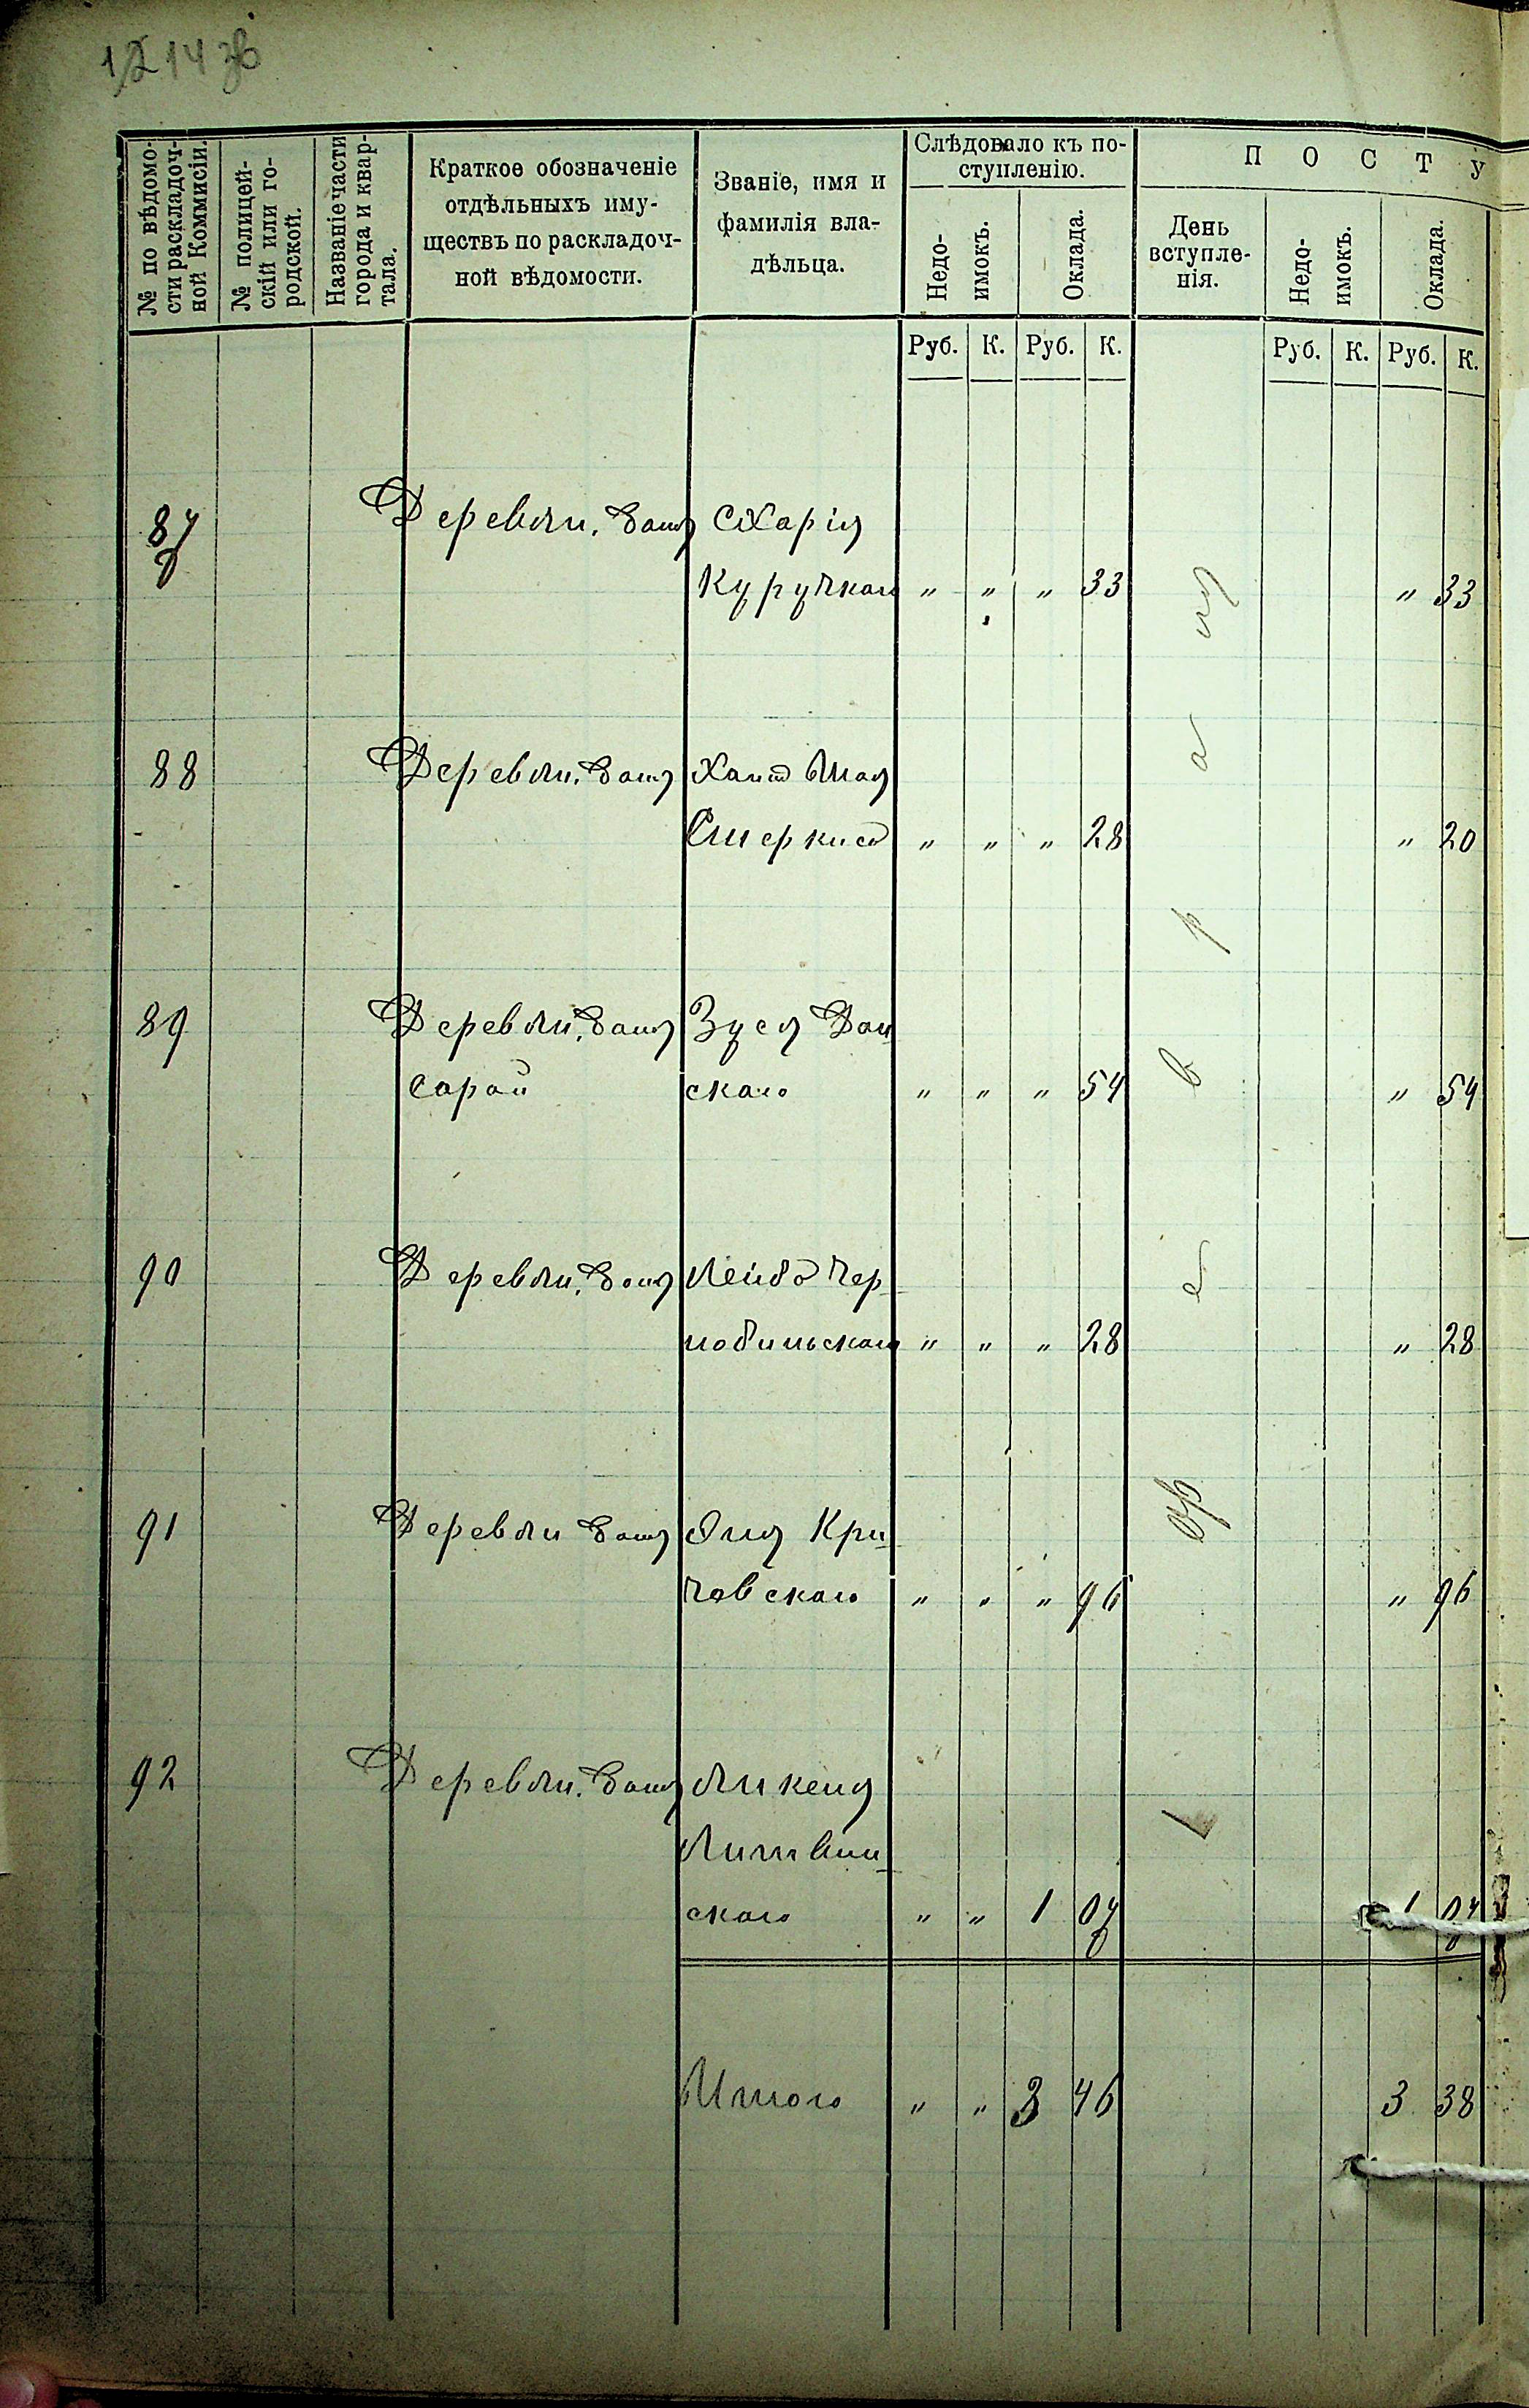 1214 зв
№ по вѣдомо-
сти раскладоч-
ной Коммисіи.
№ полицей-
скій или го-
родской.
Названіе части
города и квар-
тала.
Краткое обозначеніе
отдѣльныхъ иму-
ществъ по раскладоч-
ной вѣдомости.
Званіе, имя и
фамилія вла-
дѣльца.
Слѣдовало къ по-
ступленію.
Недо-
имокъ.
Оклада.
П О С Т У
День
вступле-
нія.
Недо-
имокъ.
Оклада.
Руб. К. Руб. К. Руб. К. Руб. К.
87 Деревян. домъ
" " " 33 " 33
88 Деревян. домъ
" " " 28 " 20
89 Деревян. домъ Зуся Дан
сарай скаго " " " 54 " 54
90 Деревян. домъ Лейба Чер
нобильскаго " " " 28 " 28
91 Деревян домъ Кри
чевскаго " " " 96 " 96
92 Деревян. домъ
Литвин
скаго " " 1 07 1 07
Итого " " 3 46 3 38